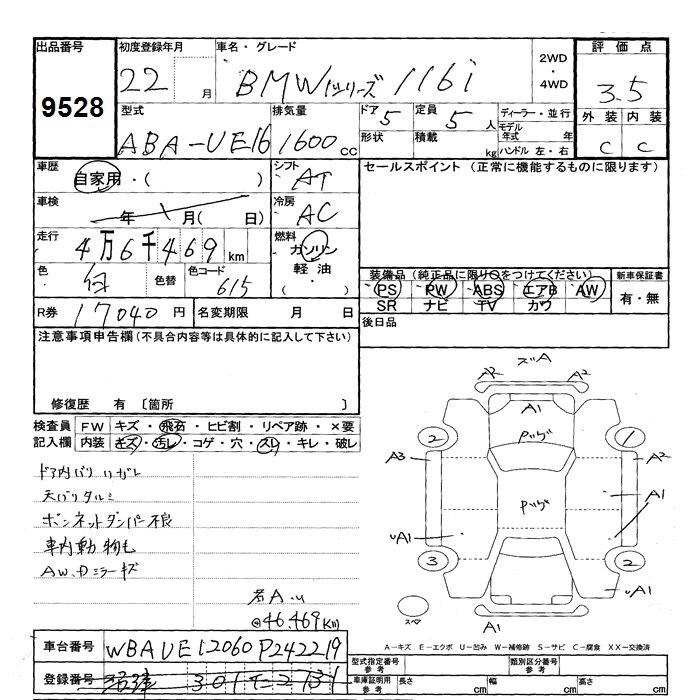 出品番号
9528
初度登録年月
22 月
車名・グレード
BMW 1シリーズ 116i
2WD
・
4WD
評価点
3.5
型式
ABA-UE16
排気量
1600 cc
ドア 5
定員 5 人
形状
積載 kg
ディーラー・並行
モデル年式 年
ハンドル 左・右
外装 内装
C C
車歴
自家用・( )
シフト
AT
車検
年 月( 日)
冷房
AC
走行
4万6千469 km
燃料
ガソリン
軽油
( ・ )
色
白 色替
色コード
615
R券 17040 円
名変期限 月 日
セールスポイント (正常に機能するものに限ります)
装備品(純正品に限り○をつけてください)
PS PW ABS エアB AW
SR ナビ TV カワ
新車保証書
有・無
後日品
注意事項申告欄(不具合内容等は具体的に記入して下さい)
修復歴 有 〔箇所 〕
検査員 FW キズ・飛石・ヒビ割・リペア跡・×要
記入欄 内装 キズ・汚レ・コゲ・穴・スレ・キレ・破レ
ドア内バリ ハガレ
天バリタルミ
ボンネットダンパー不良
車内動物毛
AW、Dミラーキズ
若A.U
@46.469Km
ズA
A2 A2
A1
Pツゲ
2 1
A3 A2
Pツゲ
A1
UA1
3 2
UA1
スペ
A1
A-キズ E-エクボ U-凹み W-補修跡 S-サビ C-腐食 XX-交換済
車台番号 WBAUE12060P242219
登録番号
型式指定番号
参考
類別区分番号
参考
車庫証明用
参考
長さ cm
幅 cm
高さ cm